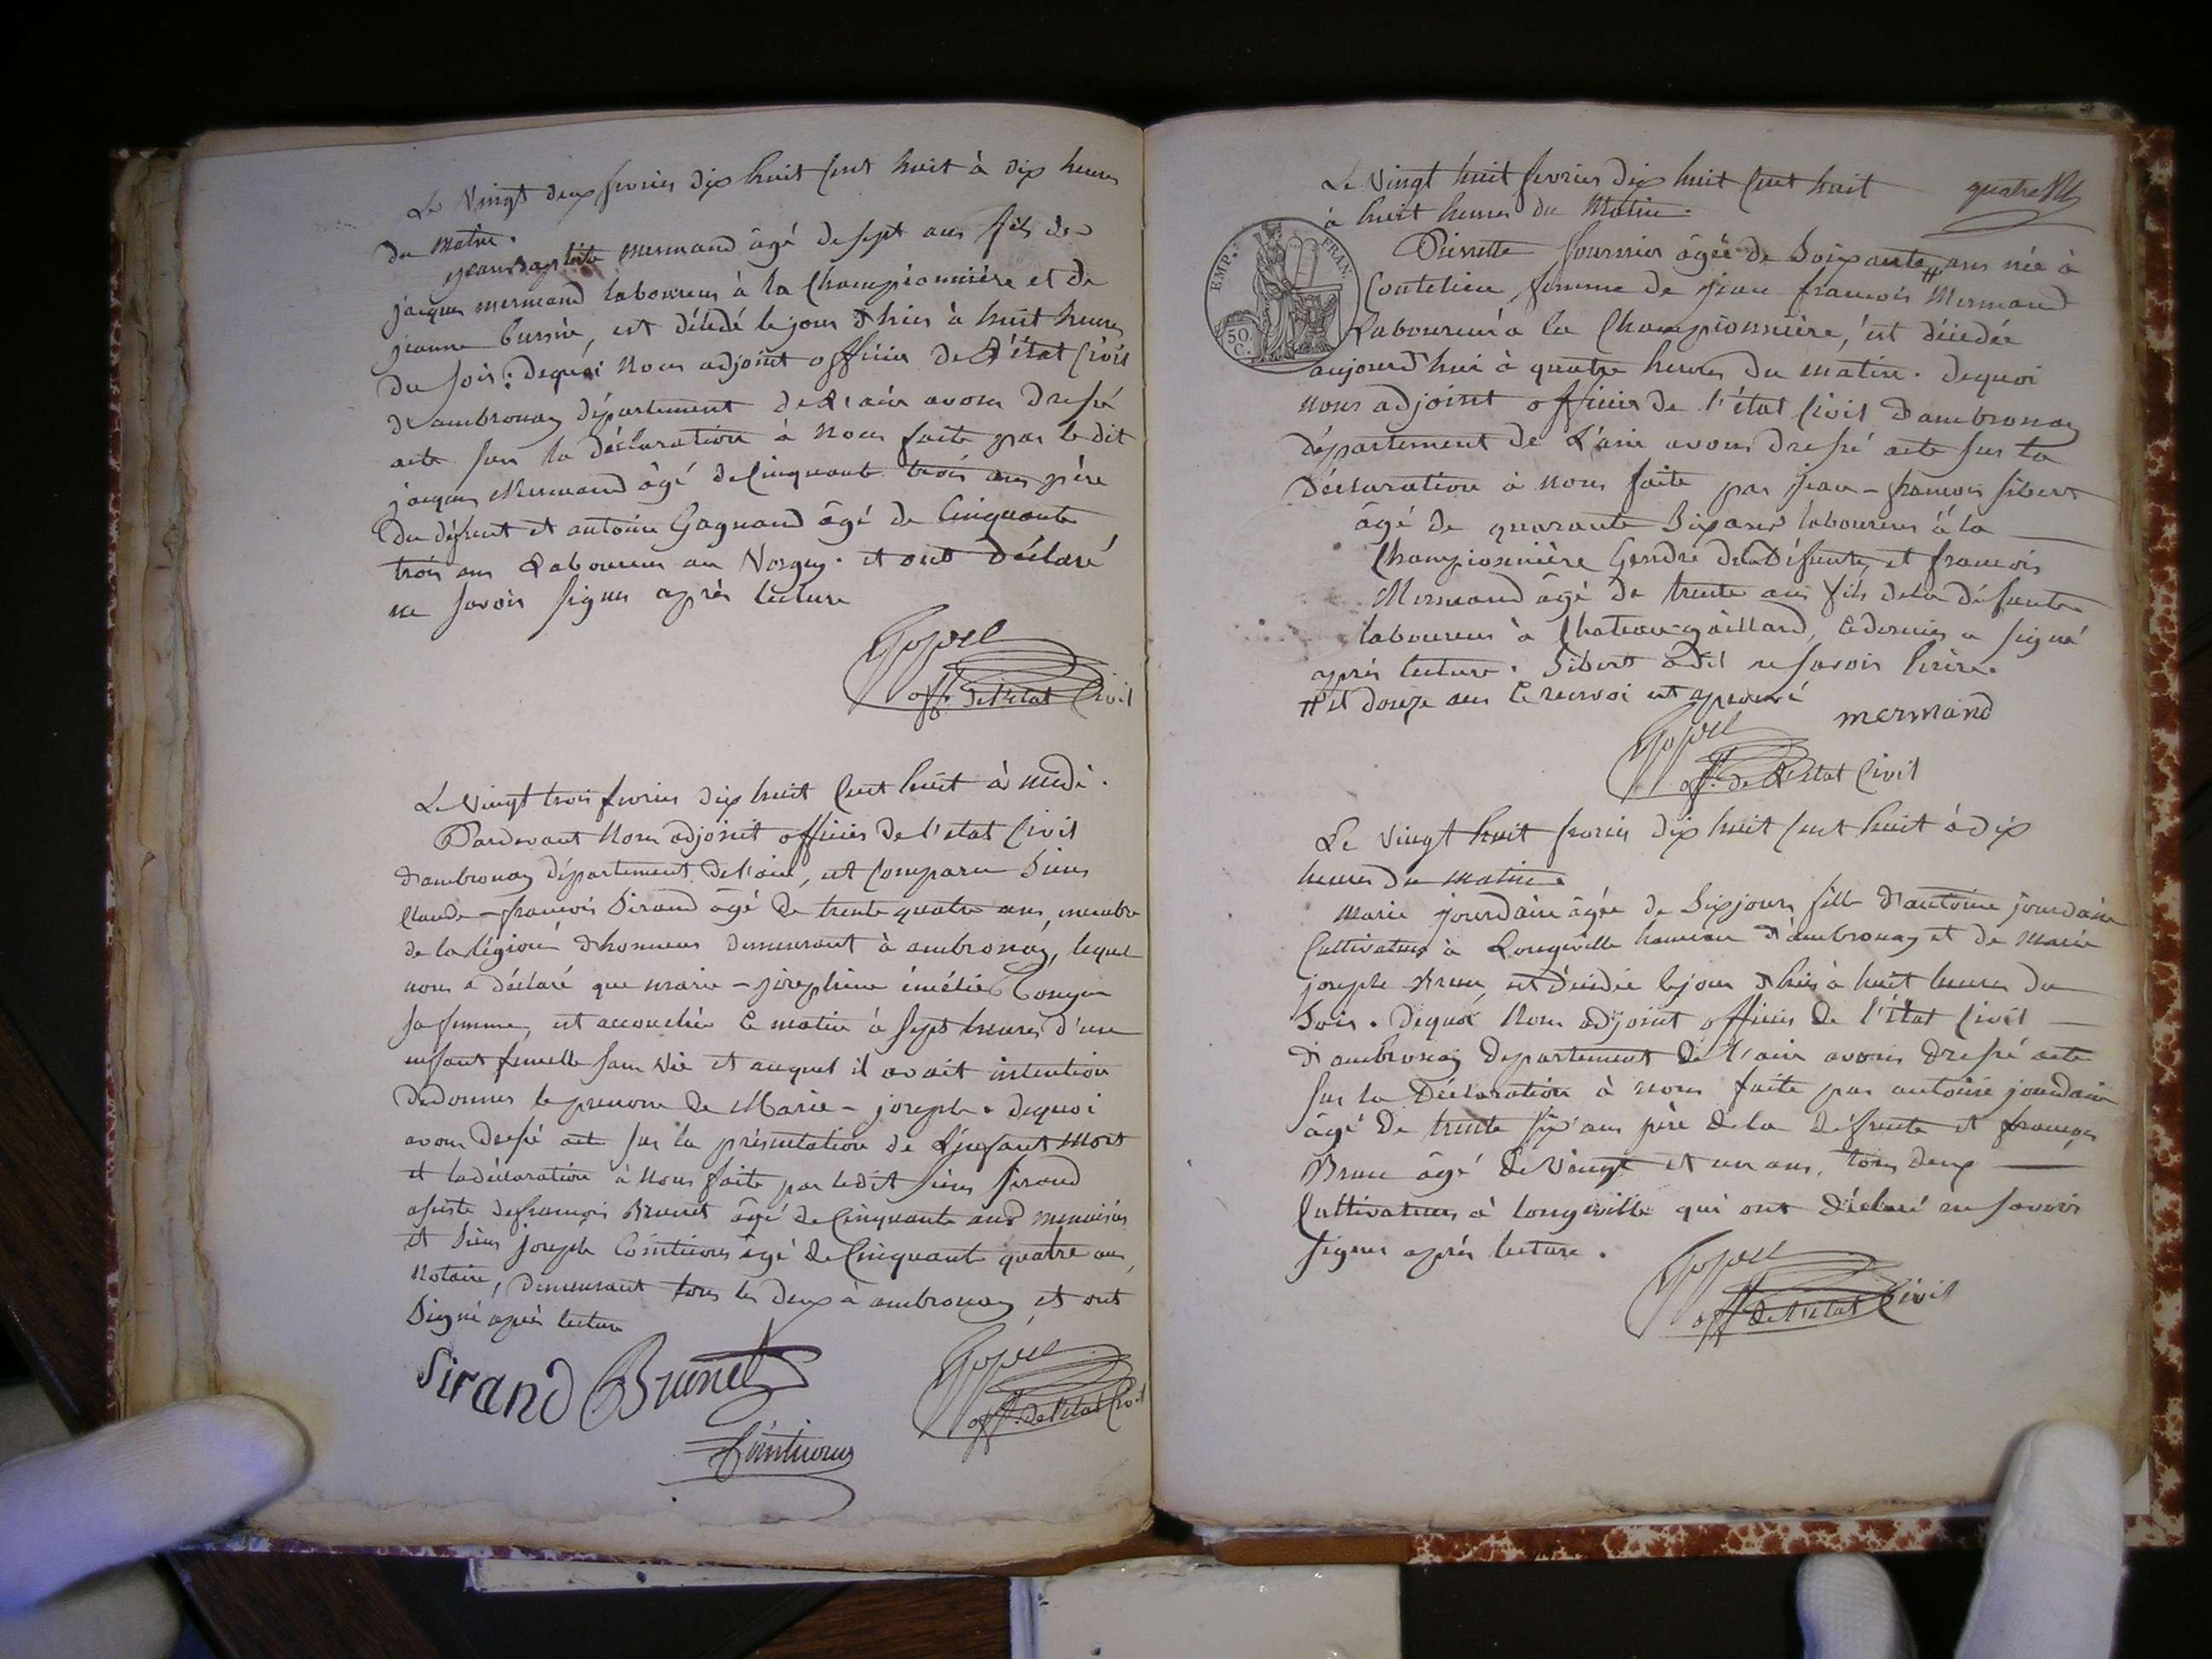 Le Vingt deux fevrier dix huit Cent huit à dix heures
du matin.
jean Baptiste Mermand âgé de sept ans fils de
jacques mermand laboureur à la Championnière et de
jeanne, est décédé le jour d'hier à huit heures
du soir: dequoi Nous adjoint officier de l'état Civil
d'ambronay département de l'ain avons dressé
acte sur la déclaration à Nous faite par le dit
jacques Mermand âgé de Cinquante trois ans père
du défunt et antoine Gagnand âgé de Cinquante
trois ans Laboureur au Vorgey. et ont déclaré
ne savoir signer après lecture
off. de l'état Civil
Le Vingt trois fevrier dix huit Cent huit à midi.
Pardevant Nous adjoint officier de l'etat Civil
d'ambronay département de l'ain, est Comparu Sieur
Claude-françois Sirand âgé de trente quatre ans, membre
de la légion d'honneur demeurant à ambronay, lequel
nous a déclaré que marie-josephine émélie
sa femme, est accouchée ce matin à sept heures d'un
enfant femelle sans vie et auquel il avait intention
de donner le prenom de Marie-joseph. dequoi
avons dressé acte sur la présentation de l'enfant mort
et la déclaration à Nous faite par ledit Sieur Sirand
assisté de françois Brunet âgé de Cinquante ans menuisier
et Sieur joseph Cointicour âgé de Cinquante quatre ans,
Notaire, demeurant tous les deux à ambronay et ont
Signé après lecture
Sirand Brunet
off. de l'état Civil
Le Vingt huit fevrier dix huit Cent huit
à huit heures du Matin.
EMP. FRAN.
50 C.
Pierrette fournier âgée de Soixante # ans née à
Coutelieu, femme de jean françois Mermand
Laboureur à la Championnière, est décédée
aujourd'hui à quatre heures du matin. dequoi
nous adjoint officier de l'état Civil d'ambronay
département de L'ain avons dressé acte sur la
déclaration à nous faite par jean-françois sibert
âgé de quarante Six ans laboureur à la
Championnière Gendre de la Défunte, et françois
Mermand âgé de trente ans fils de la défunte
laboureur à Chateau-gaillard, ce dernier a signé
après lecture. Sibert a dit ne savoir écrire.
# et douze ans le renvoi est approuvé
mermand
off. de L'Etat Civil
Le Vingt huit fevrier dix huit Cent huit à dix
heures du matin.
Marie jourdain âgée de Six jours fille d'antoine jourdain
Cultivateur à Longeville hameau d'ambronay et de Marie
joseph Brun, est décédée le jour d'hier à huit heures du
Soir. Dequoi Nous adjoint officier de l'état Civil
d'ambronay departement de l'ain avons dressé acte
sur la Déclaration à nous faite par antoine jourdain
âgé de trente six ans père de la défunte et françois
Brun âgé de Vingt et un ans, tous deux
Cultivateurs à Longeville qui ont déclaré ne savoir
signer après lecture.
off de l'état Civil